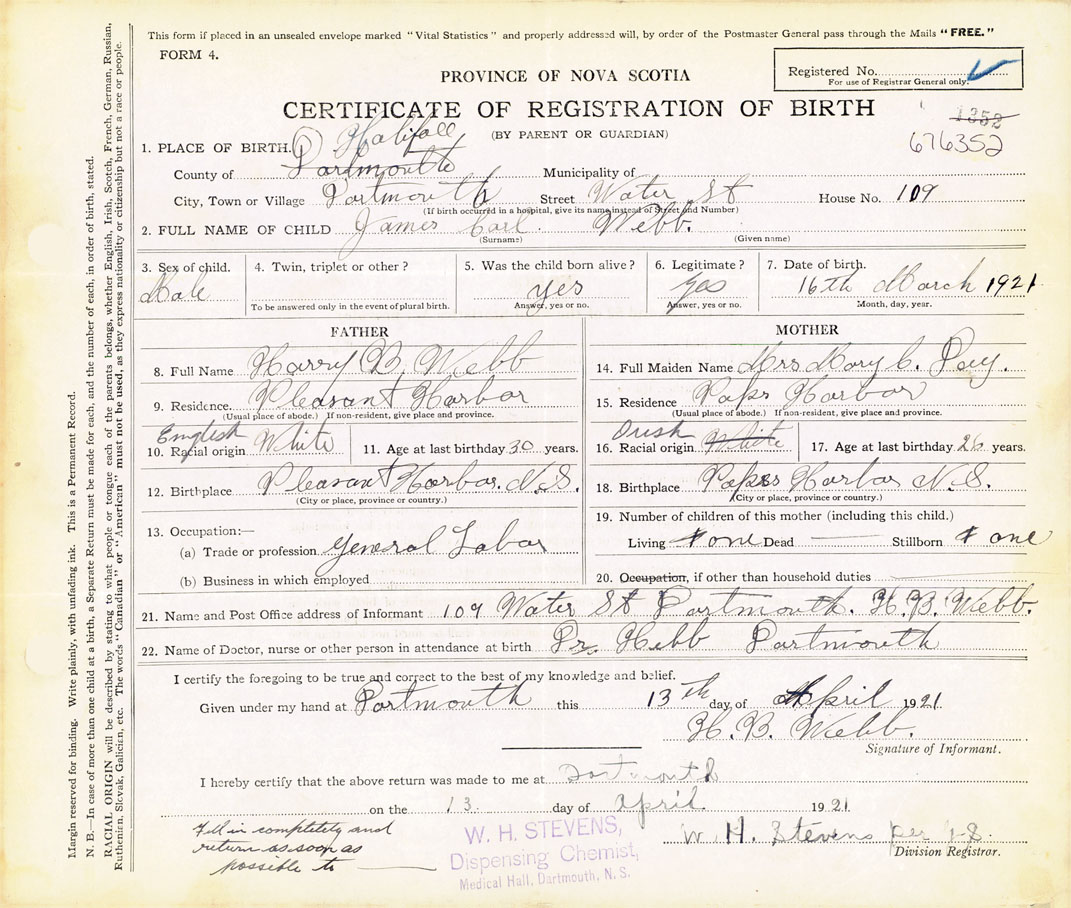 This form if placed in an unsealed envelope marked "Vital Statistics" and properly addressed will, by order of the Postmaster General pass through the Mails "FREE."
FORM 4.
PROVINCE OF NOVA SCOTIA
Registered No.
For use of Registrar General only.
CERTIFICATE OF REGISTRATION OF BIRTH
(BY PARENT OR GUARDIAN)
1352
676352
1. PLACE OF BIRTH. Halifax
County of Dartmouth Municipality of
City, Town or Village Dartmouth Street Water St House No. 109
(If birth occurred in a hospital, give its name instead of Street and Number)
2. FULL NAME OF CHILD James Carl Webb.
(Surname) (Given name)
3. Sex of child. 4. Twin, triplet or other? 5. Was the child born alive? 6. Legitimate? 7. Date of birth.
Male yes yes 16th March 1921
To be answered only in the event of plural birth. Answer, yes or no. Answer, yes or no. Month, day, year.
FATHER
8. Full Name Harry B. Webb
9. Residence. Pleasant Harbor
(Usual place of abode.) If non-resident, give place and province.
English
10. Racial origin White 11. Age at last birthday 30 years.
12. Birthplace Pleasant Harbor. N.S.
(City or place, province or country.)
13. Occupation:—
(a) Trade or profession General Labor
(b) Business in which employed
MOTHER
14. Full Maiden Name Mrs Mary C.
15. Residence Popes Harbor
(Usual place of abode.) If non-resident, give place and province.
Irish
16. Racial origin White 17. Age at last birthday 26 years.
18. Birthplace Popes Harbor N.S.
(City or place, province or country.)
19. Number of children of this mother (including this child.)
Living one Dead Stillborn one
20. Occupation, if other than household duties
21. Name and Post Office address of Informant 109 Water St Dartmouth. H.B. Webb.
22. Name of Doctor, nurse or other person in attendance at birth Dr. Hebb Dartmouth
I certify the foregoing to be true and correct to the best of my knowledge and belief.
Given under my hand at Dartmouth this 13th day of April 1921
H. B. Webb.
Signature of Informant.
I hereby certify that the above return was made to me at Dartmouth
on the 13 day of April 1921
W. H. Stevens per
Division Registrar.
Fill in completely and
return as soon as
possible to
W. H. STEVENS,
Dispensing Chemist,
Medical Hall, Dartmouth, N. S.
Margin reserved for binding. Write plainly, with unfading ink. This is a Permanent Record.
N. B.—In case of more than one child at a birth, a Separate Return must be made for each, and the number of each, in order of birth, stated.
RACIAL ORIGIN will be described by stating to what people or tongue each of the parents belongs, whether English, Irish, Scotch, French, German, Russian,
Ruthenien, Slovak, Galician, etc. The words "Canadian" or "American" must not be used, as they express nationality or citizenship but not a race or people.